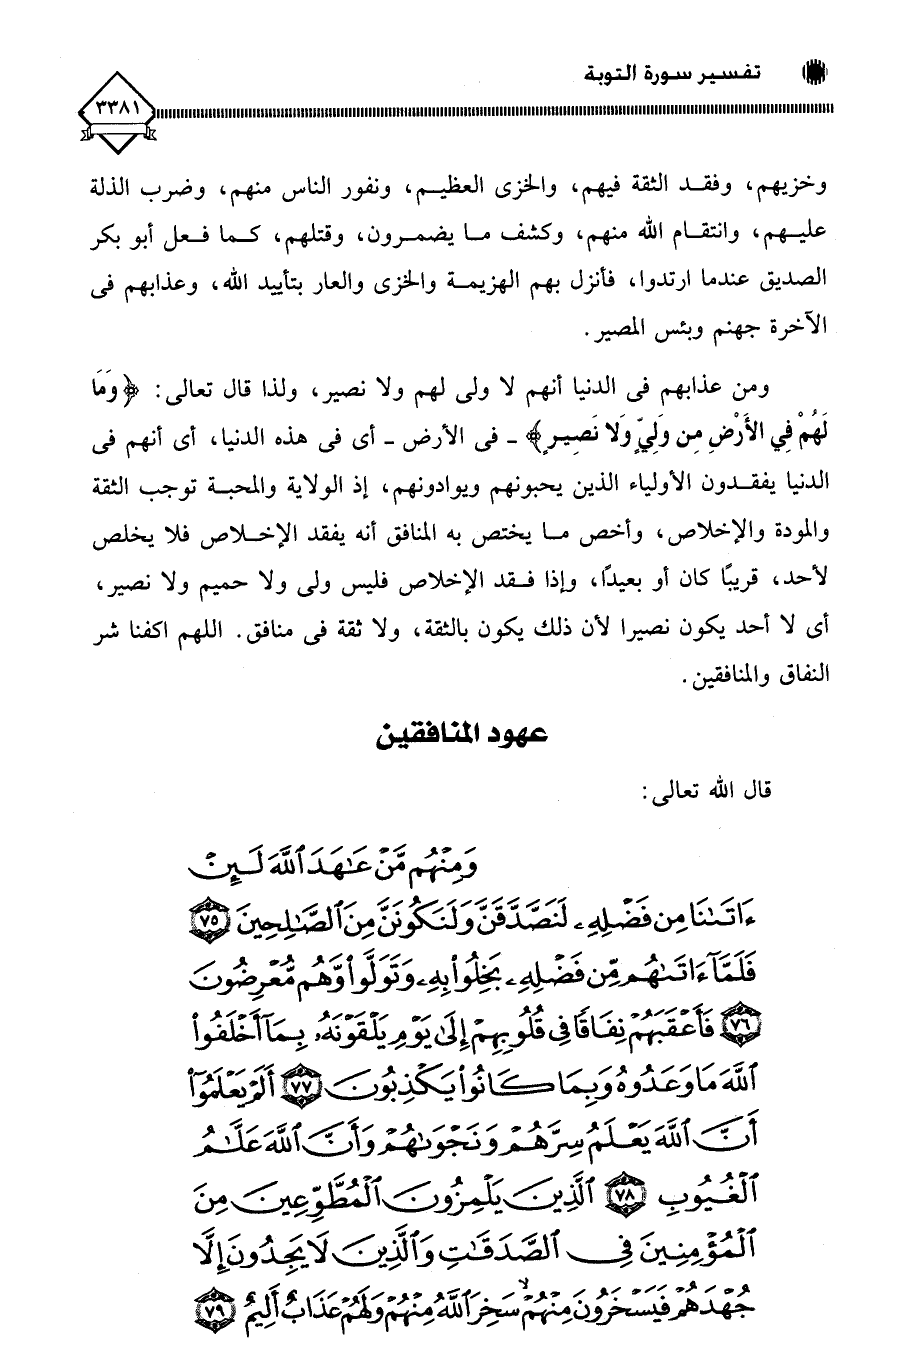 تفسير سورة التوبة
٣٣٨١
وخزيهم، وفقد الثقة فيهم، والخزى العظيم، ونفور الناس منهم، وضرب الذلة
عليهم، وانتقام الله منهم، وكشف ما يضمرون، وقتلهم، كما فعل أبو بكر
الصديق عندما ارتدوا، فأنزل بهم الهزيمة والخزى والعار بتأييد الله، وعذابهم فى
الآخرة جهنم وبئس المصير.
ومن عذابهم فى الدنيا أنهم لا ولى لهم ولا نصير، ولذا قال تعالى: ﴿وَمَا
لَهُمْ فِي الأَرْضِ مِن وَلِيٍّ وَلا نَصِيرٍ﴾ ـ فى الأرض ـ أى فى هذه الدنيا، أى أنهم فى
الدنيا يفقدون الأولياء الذين يحبونهم ويوادونهم، إذ الولاية والمحبة توجب الثقة
والمودة والإخلاص، وأخص ما يختص به المنافق أنه يفقد الإخلاص فلا يخلص
لأحد، قريبًا كان أو بعيدًا، وإذا فقد الإخلاص فليس ولى ولا حميم ولا نصير،
أى لا أحد يكون نصيرا لأن ذلك يكون بالثقة، ولا ثقة فى منافق. اللهم اكفنا شر
النفاق والمنافقين.
عهود المنافقين
قال الله تعالى:
وَمِنْهُم مَّنْ عَٰهَدَ ٱللَّهَ لَئِنْ
ءَاتَىٰنَا مِن فَضْلِهِۦ لَنَصَّدَّقَنَّ وَلَنَكُونَنَّ مِنَ ٱلصَّٰلِحِينَ ٧٥
فَلَمَّآ ءَاتَىٰهُم مِّن فَضْلِهِۦ بَخِلُوا۟ بِهِۦ وَتَوَلَّوا۟ وَّهُم مُّعْرِضُونَ
٧٦ فَأَعْقَبَهُمْ نِفَاقًا فِى قُلُوبِهِمْ إِلَىٰ يَوْمِ يَلْقَوْنَهُۥ بِمَآ أَخْلَفُوا۟
ٱللَّهَ مَا وَعَدُوهُ وَبِمَا كَانُوا۟ يَكْذِبُونَ ٧٧ أَلَمْ يَعْلَمُوٓا۟
أَنَّ ٱللَّهَ يَعْلَمُ سِرَّهُمْ وَنَجْوَىٰهُمْ وَأَنَّ ٱللَّهَ عَلَّٰمُ
ٱلْغُيُوبِ ٧٨ ٱلَّذِينَ يَلْمِزُونَ ٱلْمُطَّوِّعِينَ مِنَ
ٱلْمُؤْمِنِينَ فِى ٱلصَّدَقَٰتِ وَٱلَّذِينَ لَا يَجِدُونَ إِلَّا
جُهْدَهُمْ فَيَسْخَرُونَ مِنْهُمْ ۙ سَخِرَ ٱللَّهُ مِنْهُمْ وَلَهُمْ عَذَابٌ أَلِيمٌ ٧٩